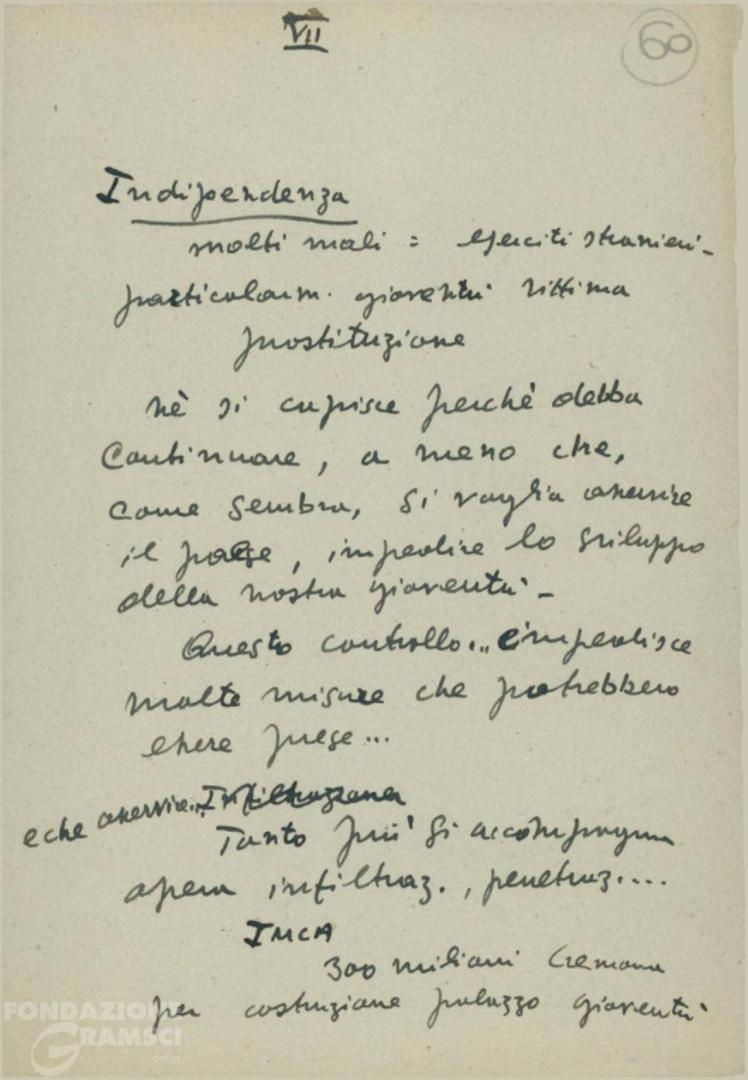 VII
60
Indipendenza
molti mali = eserciti stranieri -
particolarm. gioventù vittima
prostituzione
nè si capisce perchè debba
continuare, a meno che,
come sembra, si voglia asservire
il paese, impedire lo sviluppo
della nostra gioventù -
Questo controllo... impedisce
molte misure che potrebbero
essere prese...
e che asservia.. Infiltrazione
Tanto più si accompagna
opera infiltraz., penetraz....
IMCA
300 milioni Cremona
per costruzione palazzo gioventù
FONDAZIONE
GRAMSCI
onlus